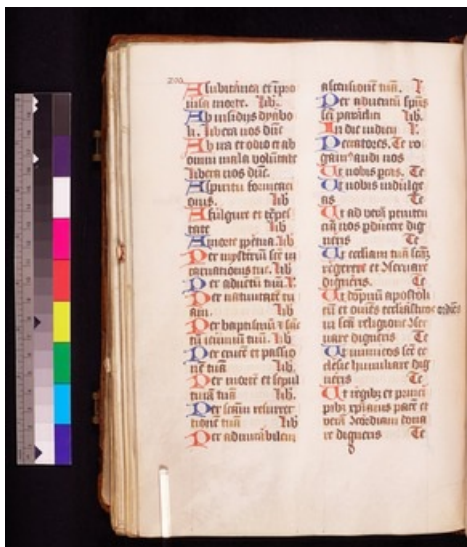 200
A subitanea et īpro
uisa morte. Lib
Ab insidijs dyabo
li. libera nos dn̄e
Ab ira et odio et ab
omni mala voluntate
libera nos dn̄e.
A spiritu fornicaci
onis. Lib
A fulgure et tēpes
tate Lib
A morte ꝑpetua. lib
Per mysteriū scē in
carnationis tue. lib
Per aduētū tuū. L
Per natiuitatē tu
am. lib
Per baptismū ⁊ scm̄
tū ieiuniū tuū. lib
Per crucē et passio
nē tuā Lib
Per mortē et sepul
turā tuā Lib
Per scām resurrec
tionē tuā Lib
Per admirabilem
ascensionē tuā. L
Per aduentū spūs
sci paracliti Lib.
In die iudicij L.
Peccatores. Te ro
gam⁹ audi nos
Ut nobis ꝑcas. Te
Ut nobis indulge
as Te
Ut ad verā peniten
ciā nos ꝑducere dig
neris Te
Ut eccliam tuā scāꝫ
regere et ꝯseruare
digneris. Te
Ut dōpnū apostoli
cū et om̄es ecclīasticos ordīes
in scā religione ꝯser
uare digneris Te
Ut inimicos scē ec
clesie humiliare dig
neris Te
Ut regibꝫ et princi
pibꝫ xpianis pacē et
verā ꝯcordiam dona
re digneris Te